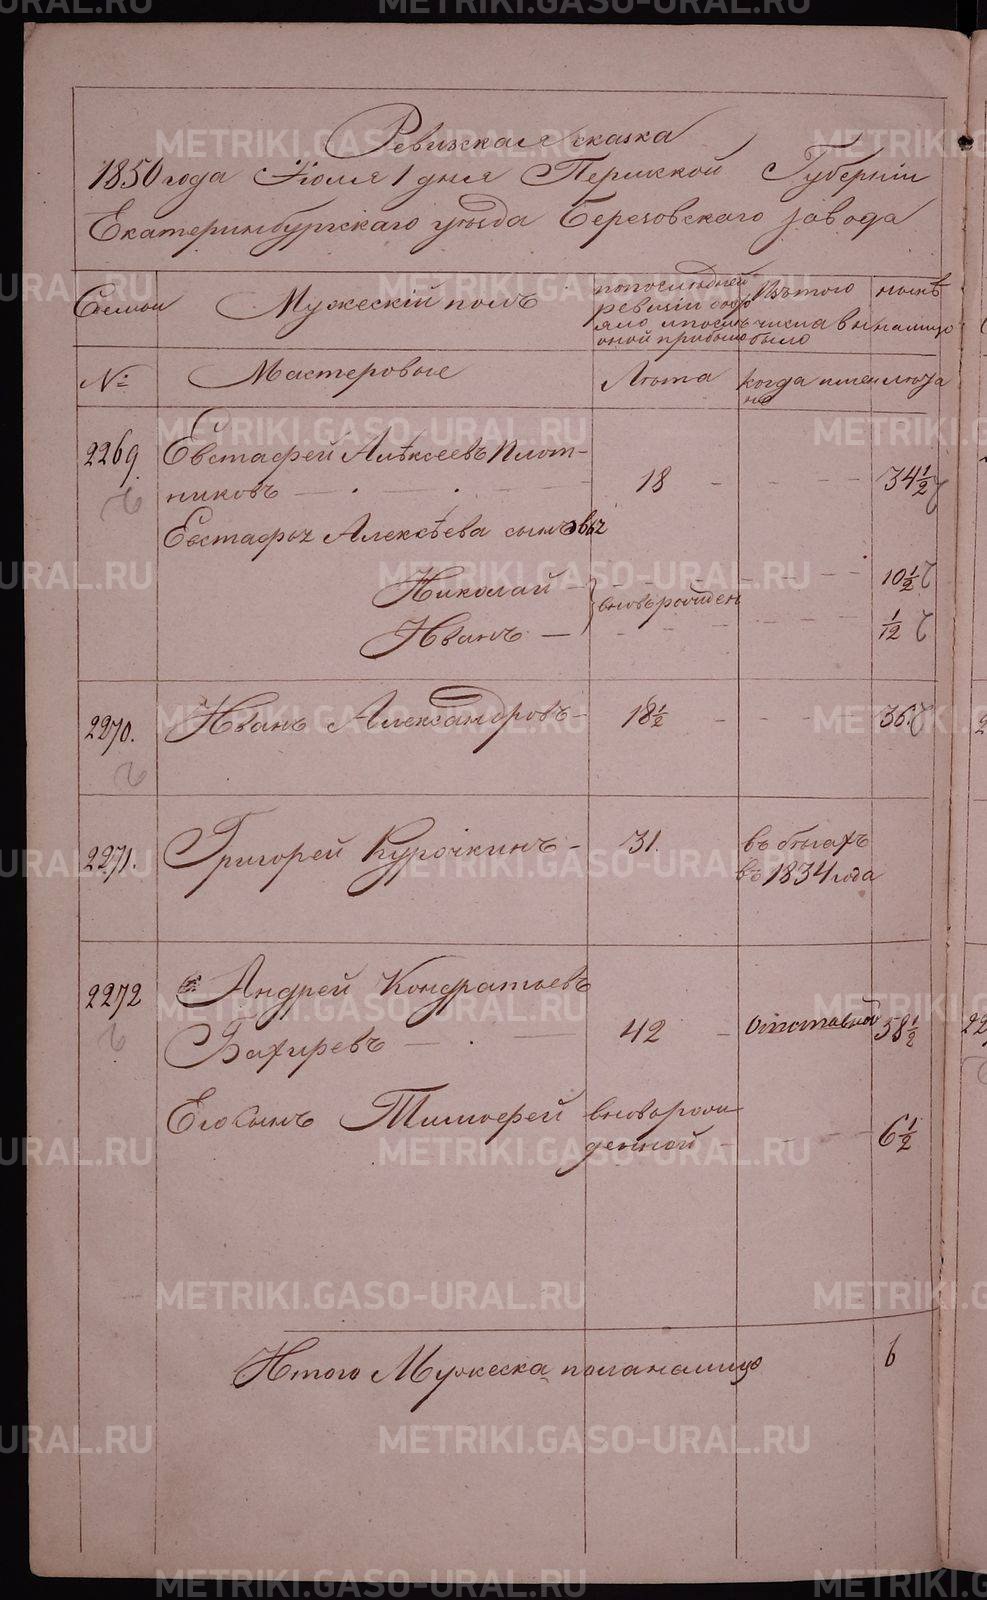 Ревизская сказка
1850 года Июля 1 дня Пермской Губернiи
Екатеринбургскаго уѣзда Березовскаго завода
Семьи Мужескiй полъ
по послѣдней ревизiи состояло и послѣ оной прибыло
Изъ того числа выбыло
нынѣ на лицо
№ Мастеровые Лѣта когда именно лѣта
2269 Евстафей Алѣксеевъ Плот-
никовъ 18 34 1/2
Евстафья Алексѣева сыновья
Николай 10 1/2
вновьрожден
Иванъ 1/12
2270. Иванъ Александровъ 18 1/2 36
2271. Григорей Курочкинъ 31. въ бѣгахъ
въ 1834 года
2272 Андрей Кондратьевъ
Бахиревъ 42 Отставной 58 1/2
Его Сынъ Тимофей вновьрож
денной 6 1/2
Итого Мужеска пола на лицо 6
METRIKI.GASO-URAL.RU